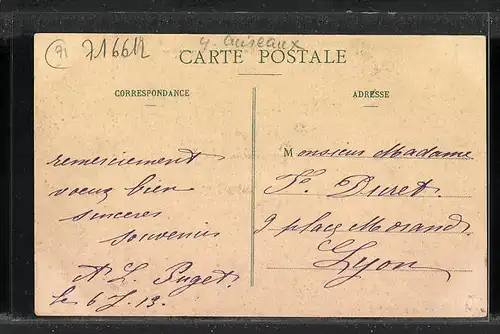 71
716612
y. oiseaux
CARTE POSTALE
CORRESPONDANCE
ADRESSE
remerciement
voeux bien
sinceres
souvenirs
A L Puget.
le 6 J. 13.
Monsieur Madame
Duret.
9 place Morand.
Lyon